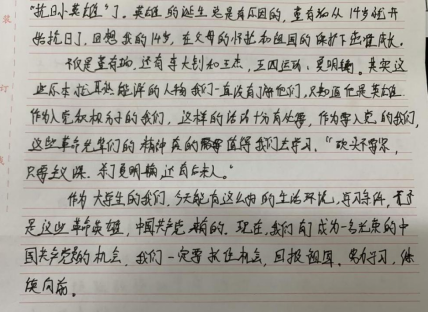 "抗日小英雄"了。英雄的诞生总是有原因的,查有钧从14岁就开
始抗日了,回想我的14岁,在父母的怀抱和祖国的保护下茁壮成长。
不仅是查有钧,还有李大钊和王杰,五四运动、夏明翰。其实这
些原本耳熟能详的人物我们一直没有了解他们,只知道他是英雄
作为入党积极分子的我们,这样的活动十分有必要,作为要入党的我们,
这些革命先辈们的精神真的值得我们去学习,"砍头不要紧,
只要主义深。杀了夏明翰,还有后来人。"
作为大学生的我们,今天能有这么好的生活环境,学习条件,
是这些革命英雄,中国共产党给的。现在,我们有成为一名光荣的中
国共产党的机会,我们一定要抓住机会,回报祖国。努力学习,继
续向前。